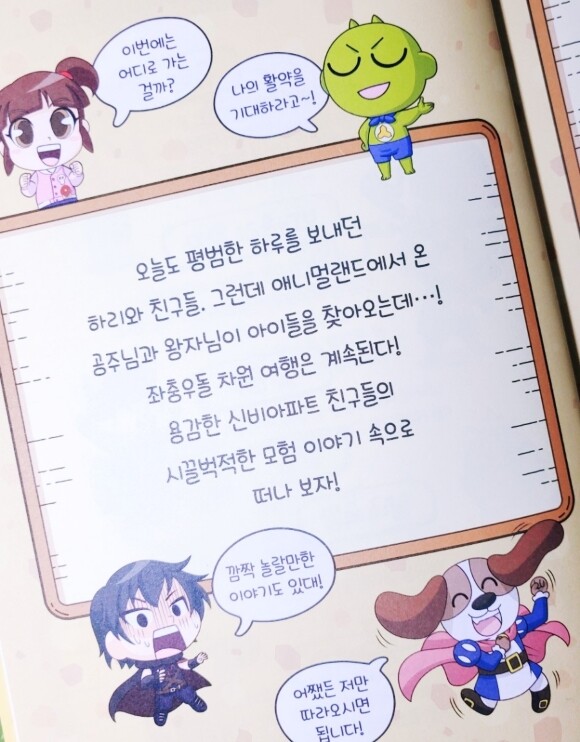 이번에는
어디로 가는
걸까?
나의 활약을
기대하라고~!
오늘도 평범한 하루를 보내던
하리와 친구들. 그런데 애니멀랜드에서 온
공주님과 왕자님이 아이들을 찾아오는데…!
좌충우돌 차원 여행은 계속된다!
용감한 신비아파트 친구들의
시끌벅적한 모험 이야기 속으로
떠나 보자!
깜짝 놀랄만한
이야기도 있대!
어쨌든 저만
따라오시면
됩니다!